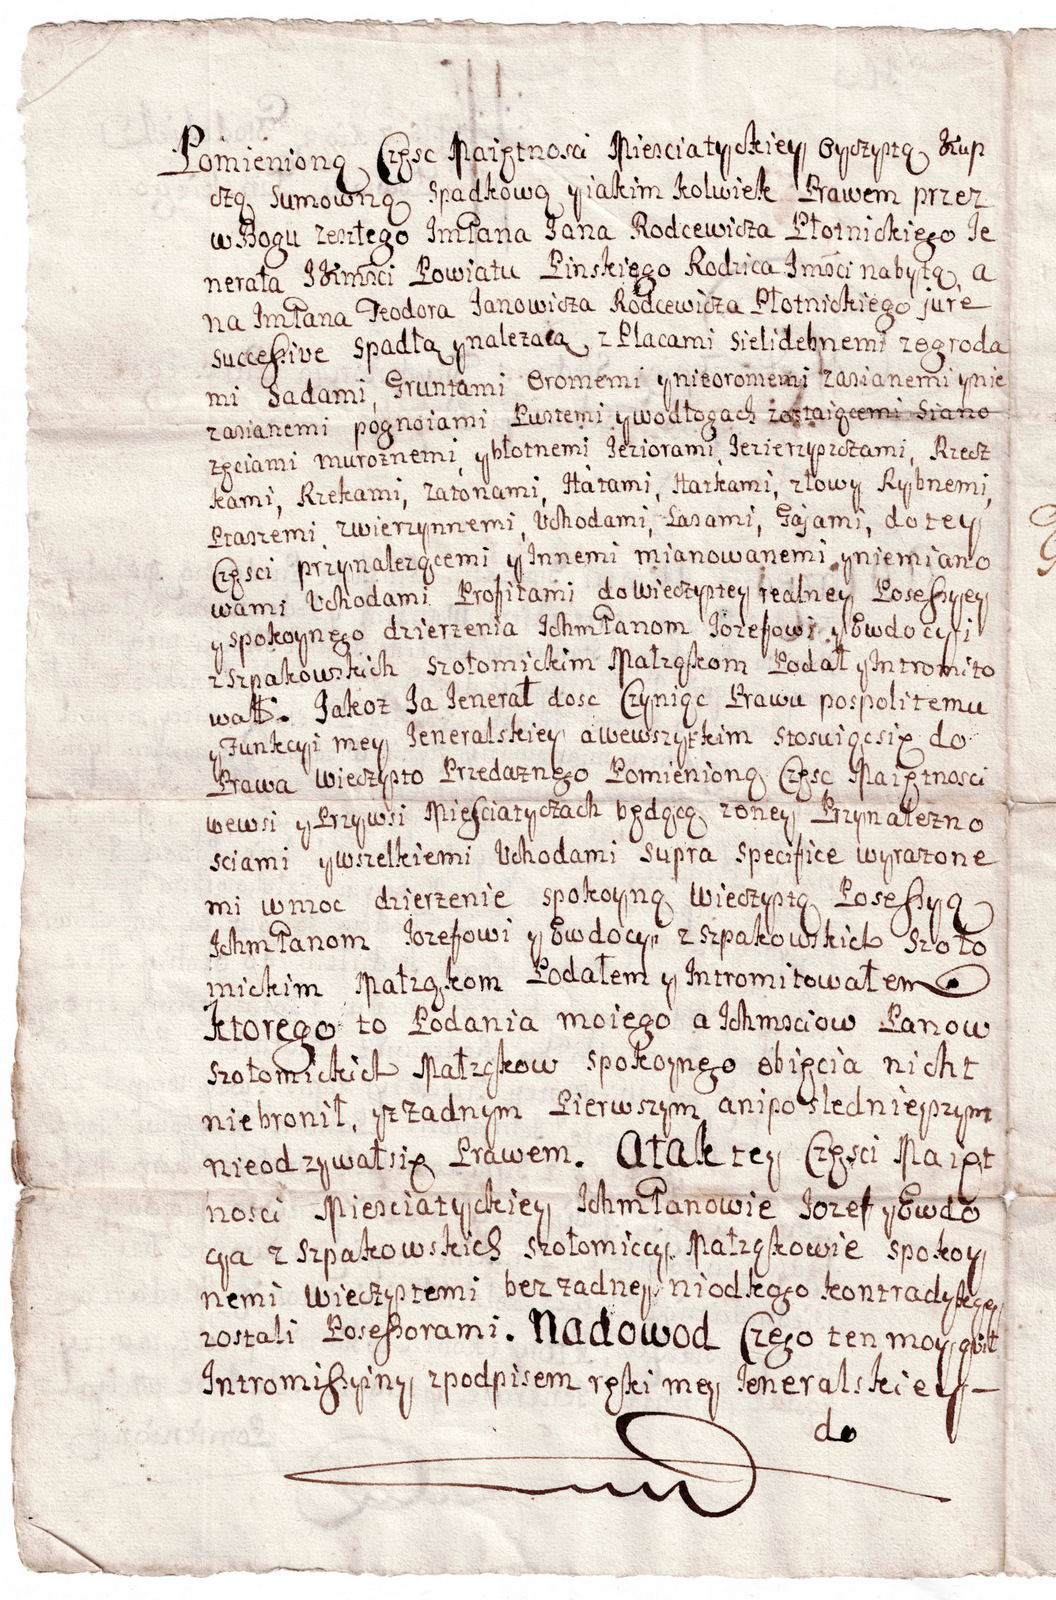 Pomienioną Częsc Maiętnosci Miesciatyckiey Oyczystą Kup
czą Sumowną Spadkową y iakim kolwiek Prawem przez
w Bogu zeszłego ImPana Jana Rodcewicza Płotnickiego Je
nerała JKmści Powiatu Pinskiego Rodzica Jmści nabytą, a
na ImPana Teodora Janowicza Rodcewicza Płotnickiego jure
successive Spadłą y należącą z Placami Sielidebnemi z ogroda
mi Sadami, Gruntami Oromemi y nieoromemi zasianemi y nie
zasianemi pognoiami Pustemi y wodłogach zostaiącemi Siano
zęciami murożnemi y błotnemi Jeziorami, Jezierzyszczami, Rzecz
kami, Rzekami, zatonami, Hatami, Hatkami, złowy Rybnemi,
Ptaszemi zwierzynnemi, Uchodami, Lasami, Gajami, do tey
Części przynalezącemi y Innemi mianowanemi y niemiano
wami Uchodami Profitami do wieczystey realney Possessyey
y spokoynego dzierzenia IchmPanom Jozefowi y Ewdocyi
z Szpakowskich Szołomickim Małząkom Podał y Intromito
wał. Jakoz Ja Jenerał dosc Czyniąc Prawu pospolitemu
y Funkcyi mey Jeneralskiey a wewszytkim stosuiącsię do
Prawa wieczysto Przedaznego Pomienioną Częsc Maiętnosci
wewsi y Przywsi Miesciatyczach będącą zoney Przynalezno
sciami y wszelkiemi Uchodami supra specifice wyrazone
mi w moc dzierzenie spokoyną wieczystą Possessyą
IchmPanom Jozefowi y Ewdocyi z Szpakowskich Szoło
mickim Małząkom Podałem y Intromitowałem
ktorego to Podania moiego a Ichmsciow Panow
Szołomickich Małząkow spokoynego obięcia nicht
niebronił, y z Zadnym Pierwszym anipośledniejszym
nieodzywałsię Prawem. A tak tey Części Maięt
nosci Miesciatyckiey IchmPanowie Jozef y Ewdo
cya z Szpakowskich Szołomiccy Małząkowie spokoy
nemi wieczystemi bez zadney niodkogo kontradykcyey
zostali Possessorami. Nadowod Czego ten moy qwit
Intromissyiny z podpisem ręki mey Jeneralskiey
do